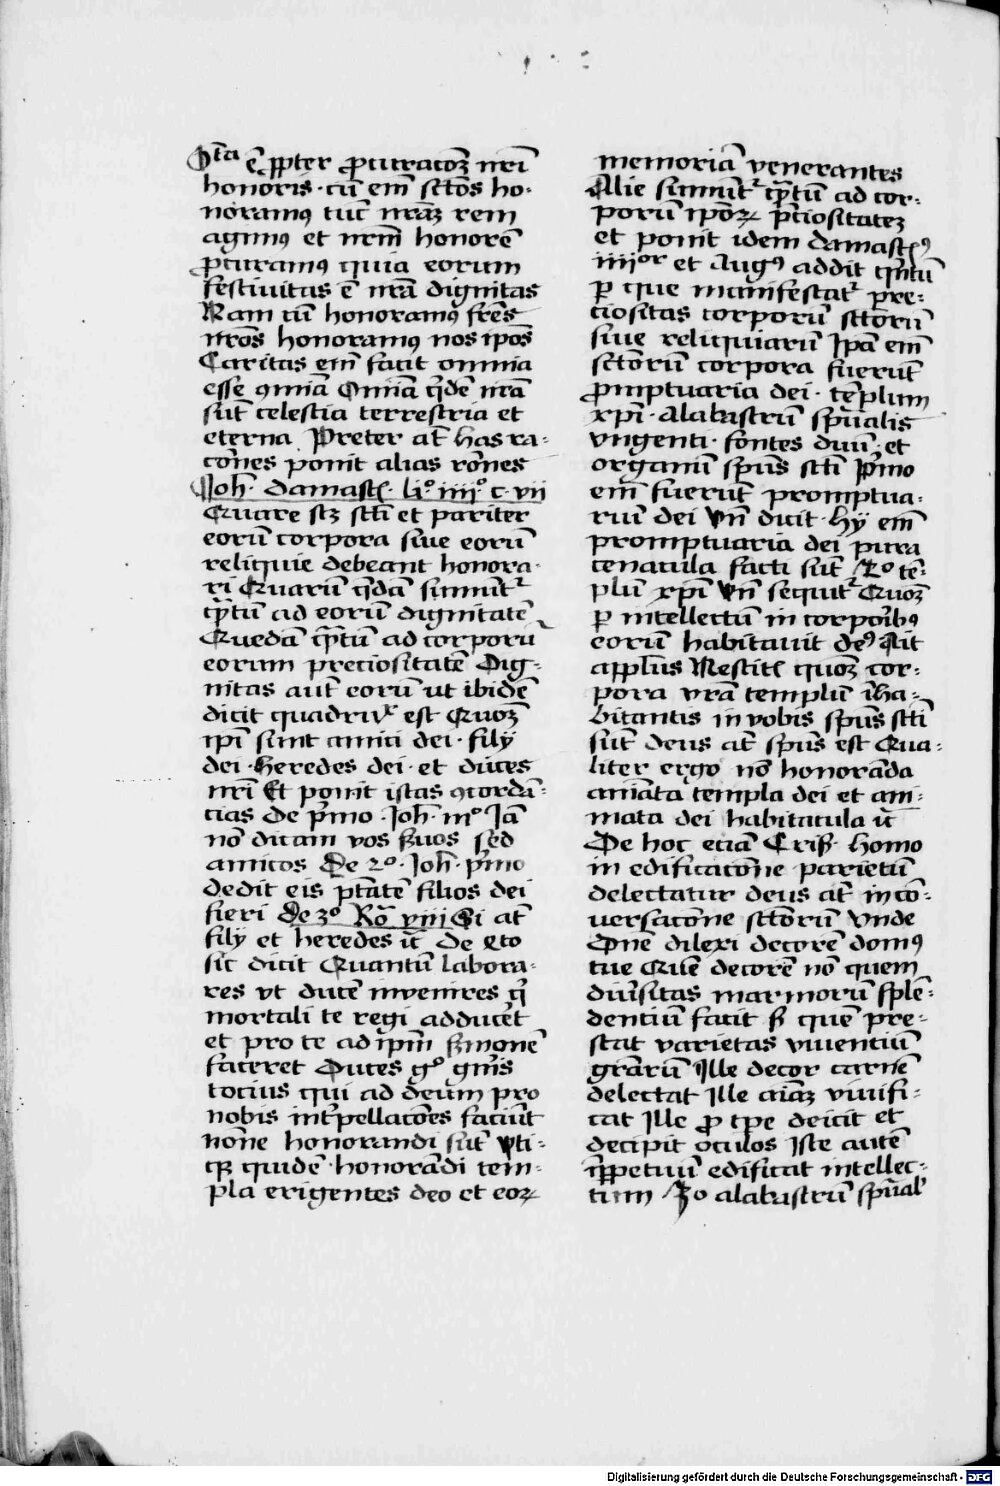 Qͬta ē ꝓpter ꝓcuracōꝫ nr̄i
honoris · cū em̄ sctōs ho-
noramꝰ tūc nrāꝫ rem
agimꝰ et nrm̄ honorē
ꝓcuramꝰ quia eorum
festivitas ē nrā dignitas
Nam cū honoramꝰ frēs
nrōs honoramꝰ nos ipōs
Caritas em̄ facit omnia
esse ꝯmīa Om̄ia qͥdē nrā
sūt celestia terrestria et
eterna Preter at̄ has ra-
cōnes ponit alias rōnes
Joh̄ · damasc̄ · liͦ iiiiͦ c · vii
Quare sꝫ scti et pariter
eorū corpora sive eorū
reliquie debeant honora-
ri Quarū qͥdā sumūtᷣ
qͣtū ad eorū dignitatē
Quedā qͣtū ad corporū
eorum preciositatē Dig-
nitas aut̄ eorū ut ibidē
dicit quadriuͯ est Quoꝫ
ipi sunt amici dei · filij
dei · heredes dei · et duces
nr̄i Et ponit istas ꝯcordā-
cias de pͥmo · Joh̄ · mͦ Jā
nō dicam vos ẜuos sed
amicos De 2ͦ · Joh̄ · pͥmo
dedit eis ptātē filios dei
fieri De 3ͦ Rō viii Si at̄
filij et heredes uͨ De qͣto
sic dicit Quantū labora-
res vt ducē invenires qͥ
mortali te regi adducēt
et pro te ad ipm̄ ẜmonē
faceret Duces gͦ gn̄is
tocius qui ad deum pro
nobis intͥpellacōes faciūt
nōne honorandi sūt vti-
qꝫ quidē · honorādi tem-
pla erigentes deo et eoꝝ
memoriā venerantes
Alie sumūtᷣ qͣtū ad cor-
porū ipōꝝ pͨciositateꝫ
et ponit idem damascꝰ
iiiior et augꝰ addit qͥntū
ꝑ que manifestatᷣ pre-
ciositas corporū sctōrū
sive reliquiarū Ipā em̄
sctōrū corpora fuerūt
ꝓmptuaria dei · tēplum
xp̄i · alabastrū spūalis
vngenti · fontes diuī · et
organū spūs scti Pͥmo
em̄ fuerūt promptua-
riū dei Vn̄ dicit · hij em̄
promptuaria dei pura
cenacula facti sūt 2ͦ tē-
plū xp̄i Vn̄ sequitᷣ Quoꝫ
ꝑ intellectum in corporibꝰ
eorū habitavit deꝰ Ait
aplūs Nescitis quoꝫ cor-
pora vrā templū ihā-
bitantis in vobis spūs scti
sūt deus at̄ spūs est Qua-
liter ergo nō honorāda
aīata templa dei et ani-
mata dei habitacula uͨ
De hoc etiam Crisͦ · Homo
in edificacōne parietū
delectatur deus at̄ in cō-
versacōne sctōrū Vnde
Dn̄e dilexi decorē domꝰ
tue Quē decorē nō quem
diuͥsitas marmorū splē-
dentiū facit ẜ quē pre-
stat varietas viventiū
grārū Ille decor carnē
delectat Ille aīaꝫ vivifi-
cat Ille ꝓ tpe deicit et
decipit oculos Iste autē
īꝑpetuū edificat intellec-
tum 3ͦ alabastrū spūal
Digitalisierung gefördert durch die Deutsche Forschungsgemeinschaft - DFG